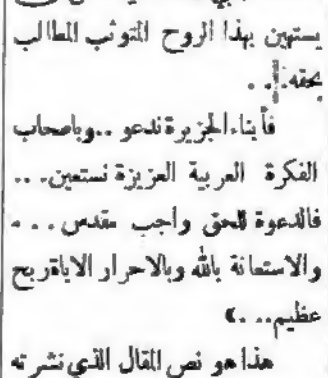 يستهين بهذا الروح المتوثب المطالب
بحقه! . .
فأبناء الجزيرة ندعو .. وباصحاب
الفكرة العربية العزيزة نستعين . ..
فالدعوة للحق واجب مقدس . . .
والاستعانة بالله وبالاحرار الاباة ربح
عظيم.. . .»
هذا هو نص المقال الذي نشرته